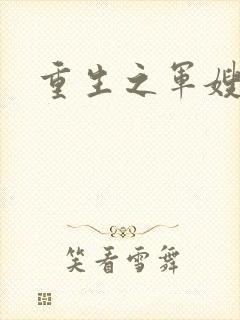 重生之军嫂
笑看雪舞